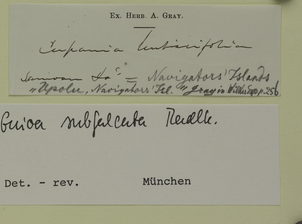 Ex. Herb. A. Gray.
Cupania lentiscifolia
Samoan Is = Navigators' Islands
"Upolu, Navigators' Isl." Gray in Wilkes p. 256
Guioa subfalcata Radlk.
Det. - rev. München